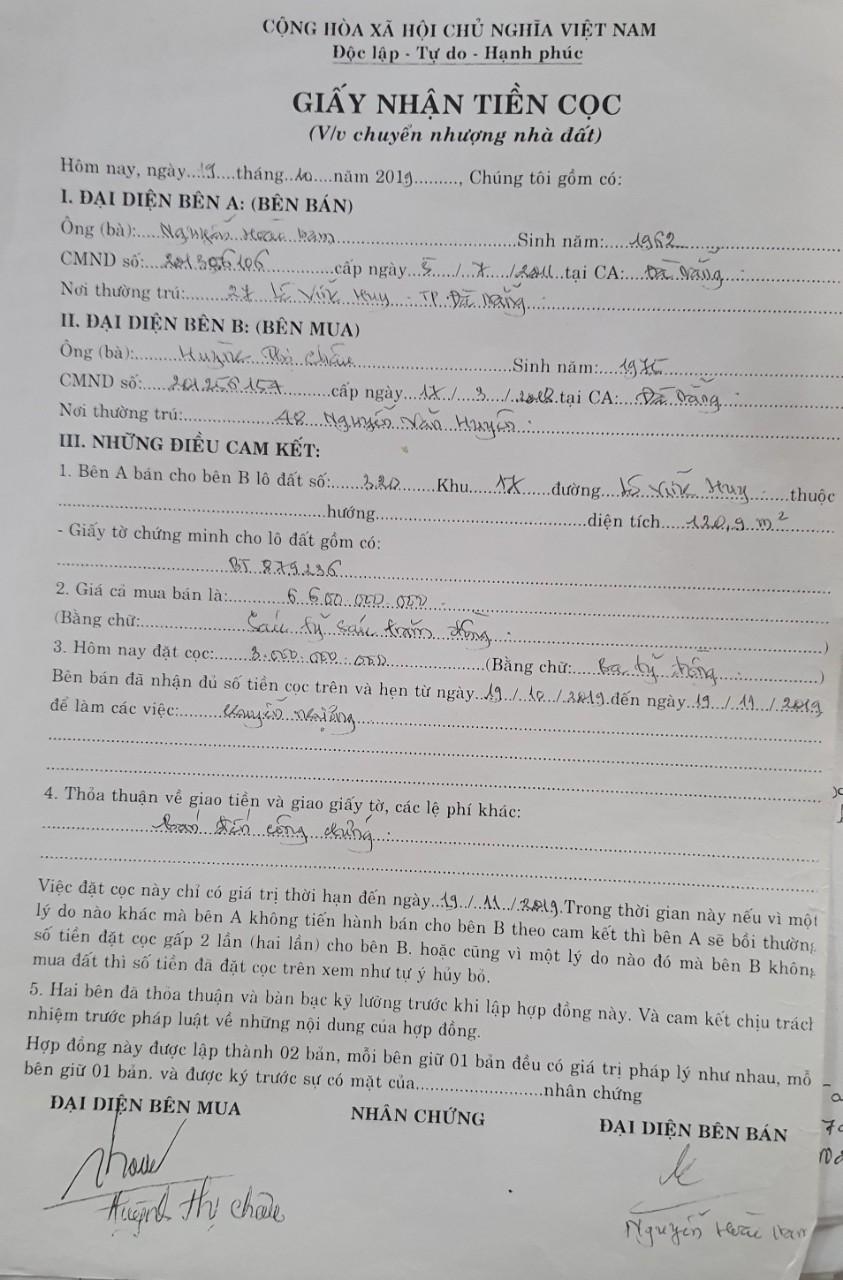 CỘNG HÒA XÃ HỘI CHỦ NGHĨA VIỆT NAM
Độc lập - Tự do - Hạnh phúc
GIẤY NHẬN TIỀN CỌC
(V/v chuyển nhượng nhà đất)
Hôm nay, ngày...19....tháng..10....năm 2019........., Chúng tôi gồm có:
I. ĐẠI DIỆN BÊN A: (BÊN BÁN)
Ông (bà):....Nguyễn Hoài ..........Sinh năm:....1962
CMND số:...201306106..........cấp ngày..5.../...7.../2011..tại CA:...Đà Nẵng...:
Nơi thường trú:........27 Lê Vĩnh Huy - TP. Đà Nẵng :
II. ĐẠI DIỆN BÊN B: (BÊN MUA)
Ông (bà):.......Huỳnh Thị Châu..........Sinh năm:...1975
CMND số:....201256157..........cấp ngày..17./...3.../..2018.tại CA:...Đà Nẵng...:
Nơi thường trú:..........48 Nguyễn Văn Huyên :
III. NHỮNG ĐIỀU CAM KẾT:
1. Bên A bán cho bên B lô đất số:......320......Khu....17.....đường...Lê Vĩnh Huy......thuộc
..........hướng..........diện tích.....120,9 m²
- Giấy tờ chứng minh cho lô đất gồm có:
..........BT 879236
2. Giá cả mua bán là:..........6.600.000.000
(Bằng chữ:..........Sáu tỷ sáu trăm đồng :..........)
3. Hôm nay đặt cọc:......3.000.000.000..........(Bằng chữ:...Ba tỷ đồng :..........)
Bên bán đã nhận đủ số tiền cọc trên và hẹn từ ngày..19../..10../..2019.đến ngày..19../..11../..2019
để làm các việc:........chuyển nhượng
4. Thỏa thuận về giao tiền và giao giấy tờ, các lệ phí khác:
công chứng :
Việc đặt cọc này chỉ có giá trị thời hạn đến ngày..19../..11../..2019.Trong thời gian này nếu vì một
lý do nào khác mà bên A không tiến hành bán cho bên B theo cam kết thì bên A sẽ bồi thường
số tiền đặt cọc gấp 2 lần (hai lần) cho bên B. hoặc cũng vì một lý do nào đó mà bên B không
mua đất thì số tiền đã đặt cọc trên xem như tự ý hủy bỏ.
5. Hai bên đã thỏa thuận và bàn bạc kỹ lưỡng trước khi lập hợp đồng này. Và cam kết chịu trách
nhiệm trước pháp luật về những nội dung của hợp đồng.
Hợp đồng này được lập thành 02 bản, mỗi bên giữ 01 bản đều có giá trị pháp lý như nhau, mỗ
bên giữ 01 bản. và được ký trước sự có mặt của..........nhân chứng
ĐẠI DIỆN BÊN MUA NHÂN CHỨNG ĐẠI DIỆN BÊN BÁN
Huỳnh Thị Châu Nguyễn Hoài